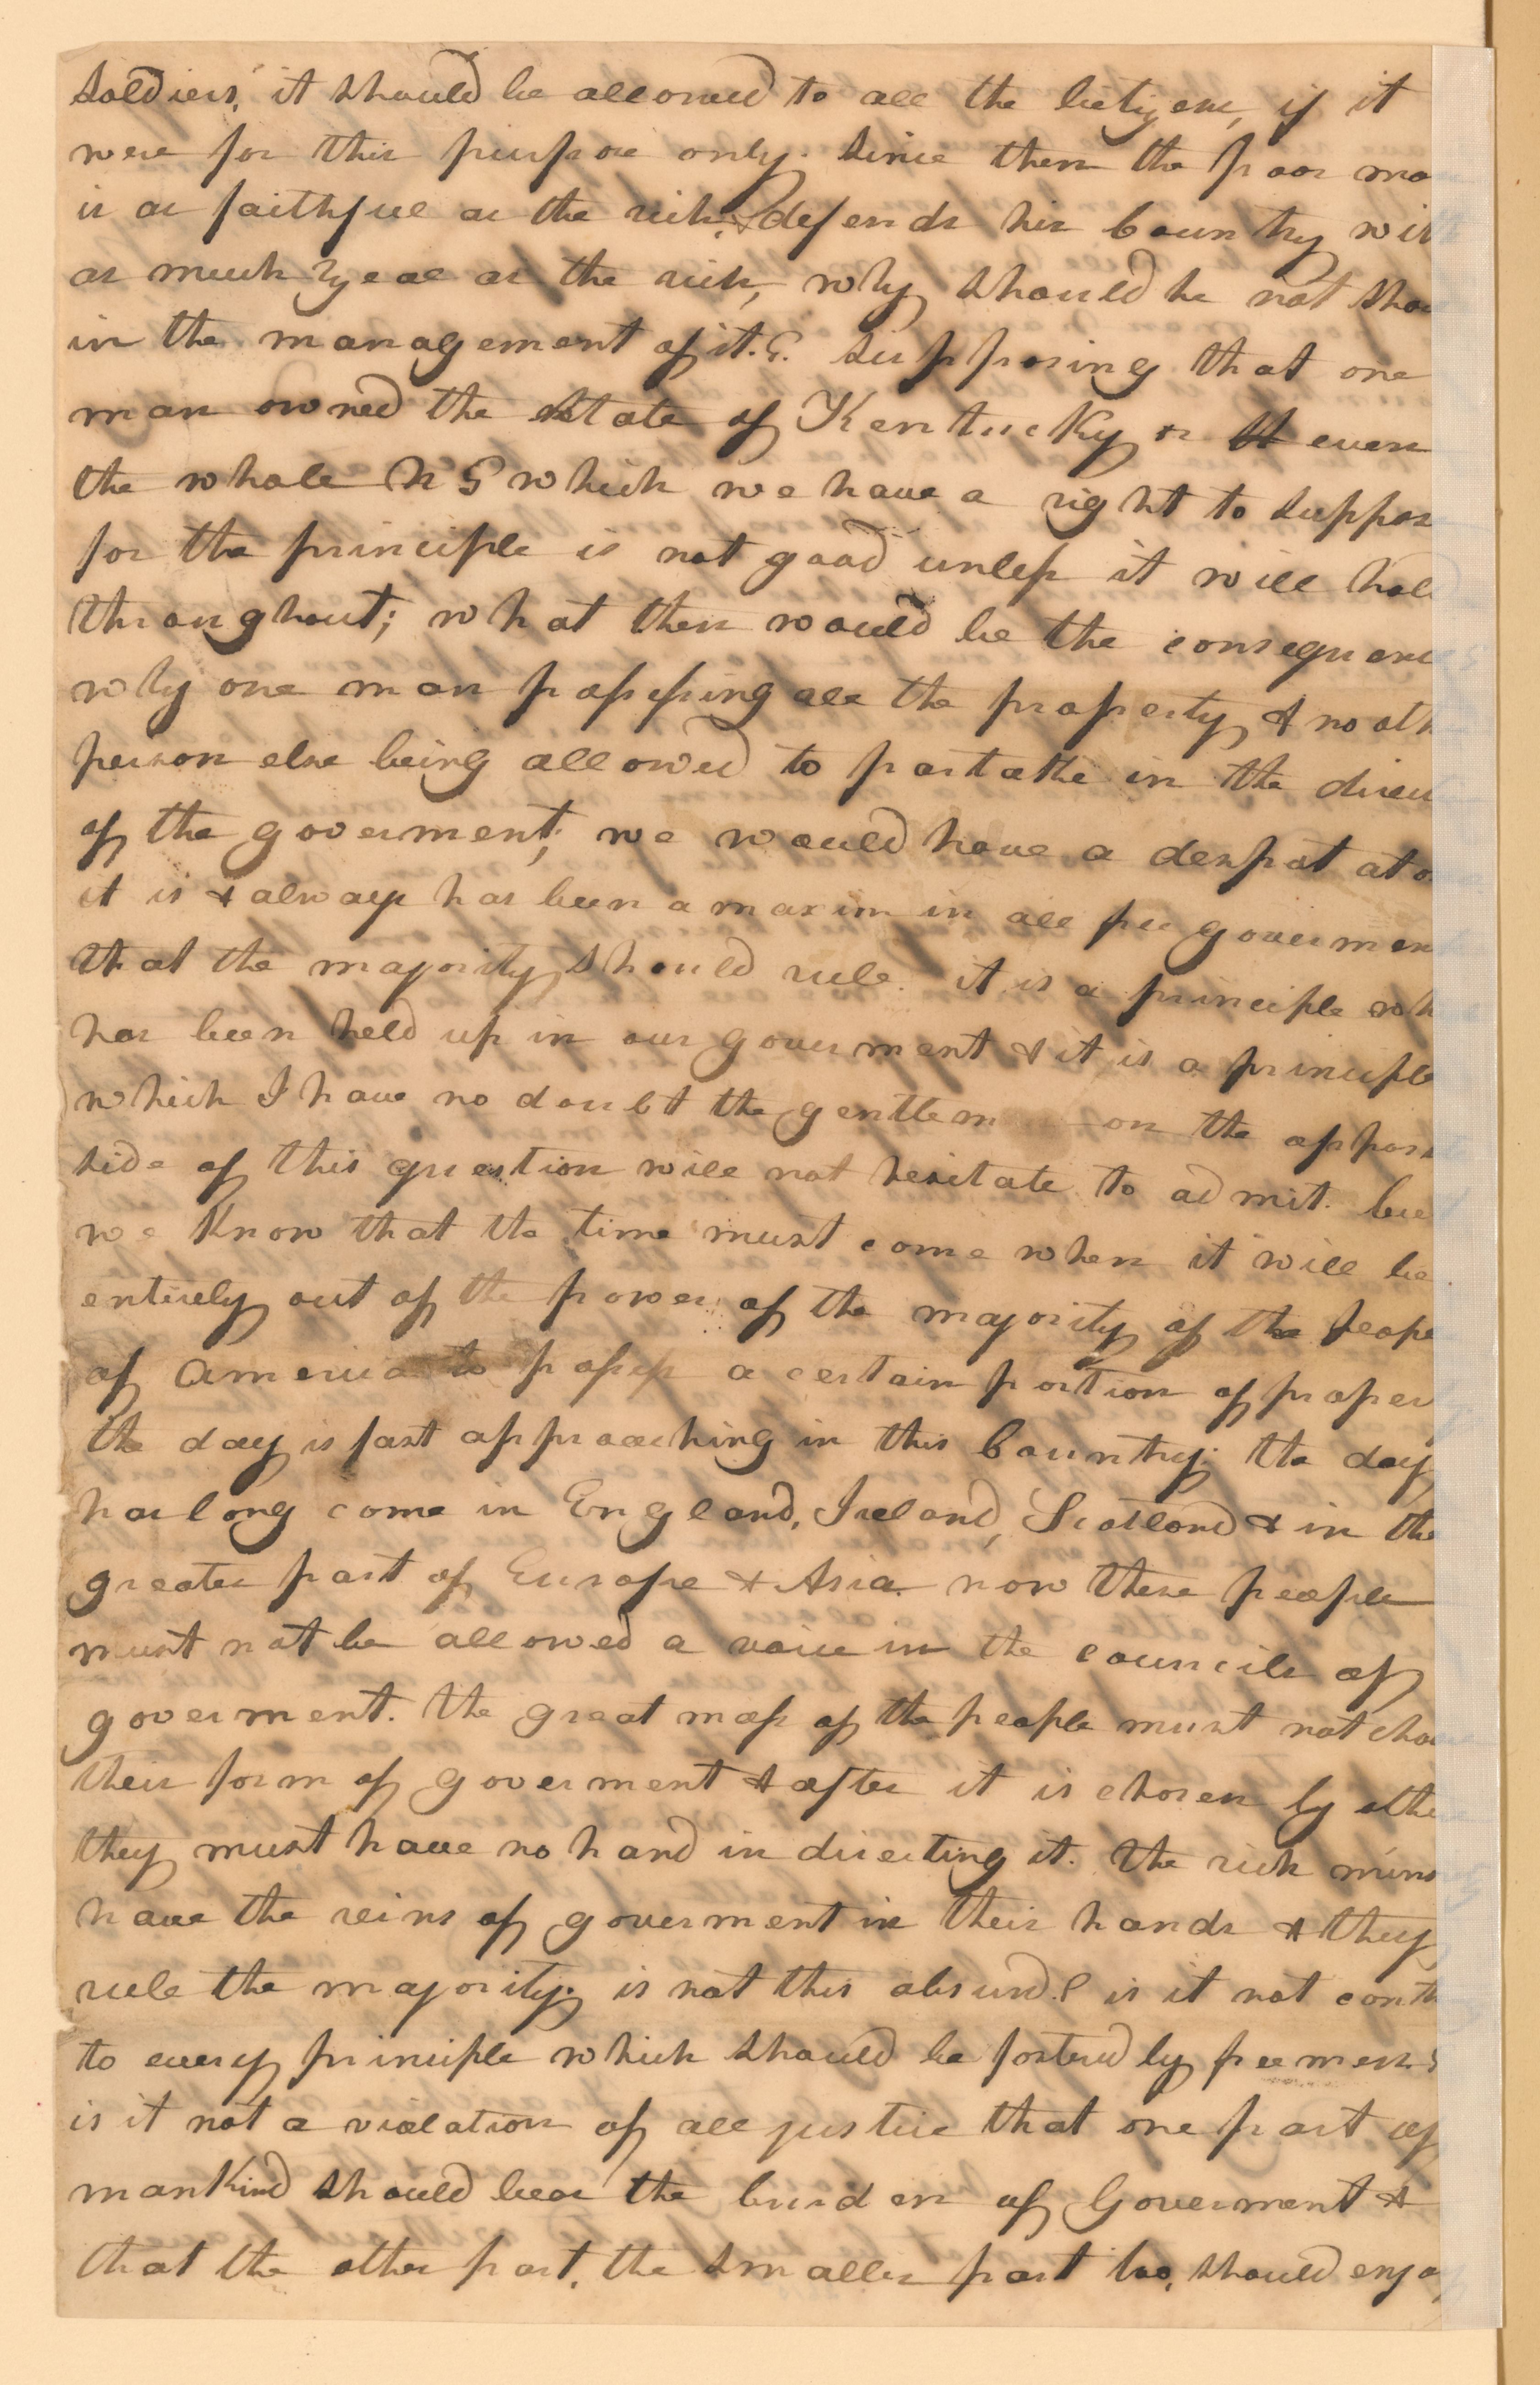 soldiers, it should be allowed to all the citizens, if it
were for this purpose only. since then the poor ma
is as faithful as the rich, & defends his Country wit
as much zeal as the rich, why should he not sha
in the management of it.? supposing that one
man owned the state of Kentucky or even
the whole U S which we have a right to suppos
for the principle is not good unless it will hol
throughout; what then would be the consequenc
why one man possessing all the property & no oth
person else being allowed to partake in the direc
of the goverment; we would have a despot at o
it is & always has been a maxim in all free govermen
that the majority should rule. it is a principle wh
has been held up in our goverment & it is a principle
which I have no doubt the gentlem on the oppos
side of this question will not hesitate to admit. bu
we know that the time must come when it will be
entirely out of the power of the majority of the peop
of America to possess a certain portion of proper
the day is fast approaching in this Country; the day
has long come in England, Ireland, Scotland & in the
greater part of Europe & Asia now these people
must not be allowed a voice in the councils of
goverment. The great mass of the people must not cho
their form of goverment & after it is chosen by othe
they must have no hand in directing it. The rich must
have the reins of goverment in their hands & they
rule the majority; is not this absurd? is it not cont
to every principle which should be fosterd by freemen?
is it not a violation of all justice that one part of
mankind should bear the burden of Goverment &
that the other part, the smaller part too, should enjo